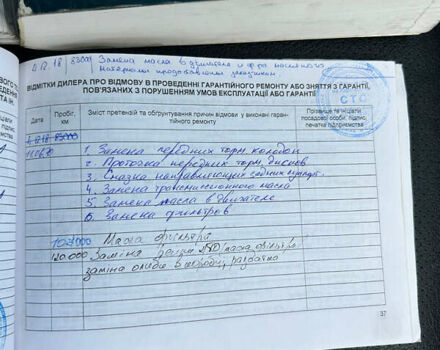 4.12.18 83000 Замена масла в двигателе и ф-ра масляного.
Материалы предоставлены заказчиком.
ВІДМІТКИ ДИЛЕРА ПРО ВІДМОВУ В ПРОВЕДЕННІ ГАРАНТІЙНОГО РЕМОНТУ АБО ЗНЯТТЯ З ГАРАНТІЇ,
ПОВ'ЯЗАНИХ З ПОРУШЕННЯМ УМОВ ЕКСПЛУАТАЦІЇ АБО ГАРАНТІЇ
Дата
Пробіг, км
Зміст претензій та обґрунтування причин відмови у виконанні гаран-
тійного ремонту
Прізвище та ініціали
посадової особи, підпис,
печатка підприємства
СТО
4.12.18 83000
1. Замена передних торм. колодок
2. Проточка передних торм. дисков
3. Смазка направляющих задних
4. Замена трансмиссионного масла
5. Замена масла в двигателе
6. Замена фильтров
Масла фильтра
120.000 Заміна
заміна оливи в коробці,
37